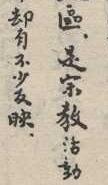 區、是宗教活動
却有不少反映、